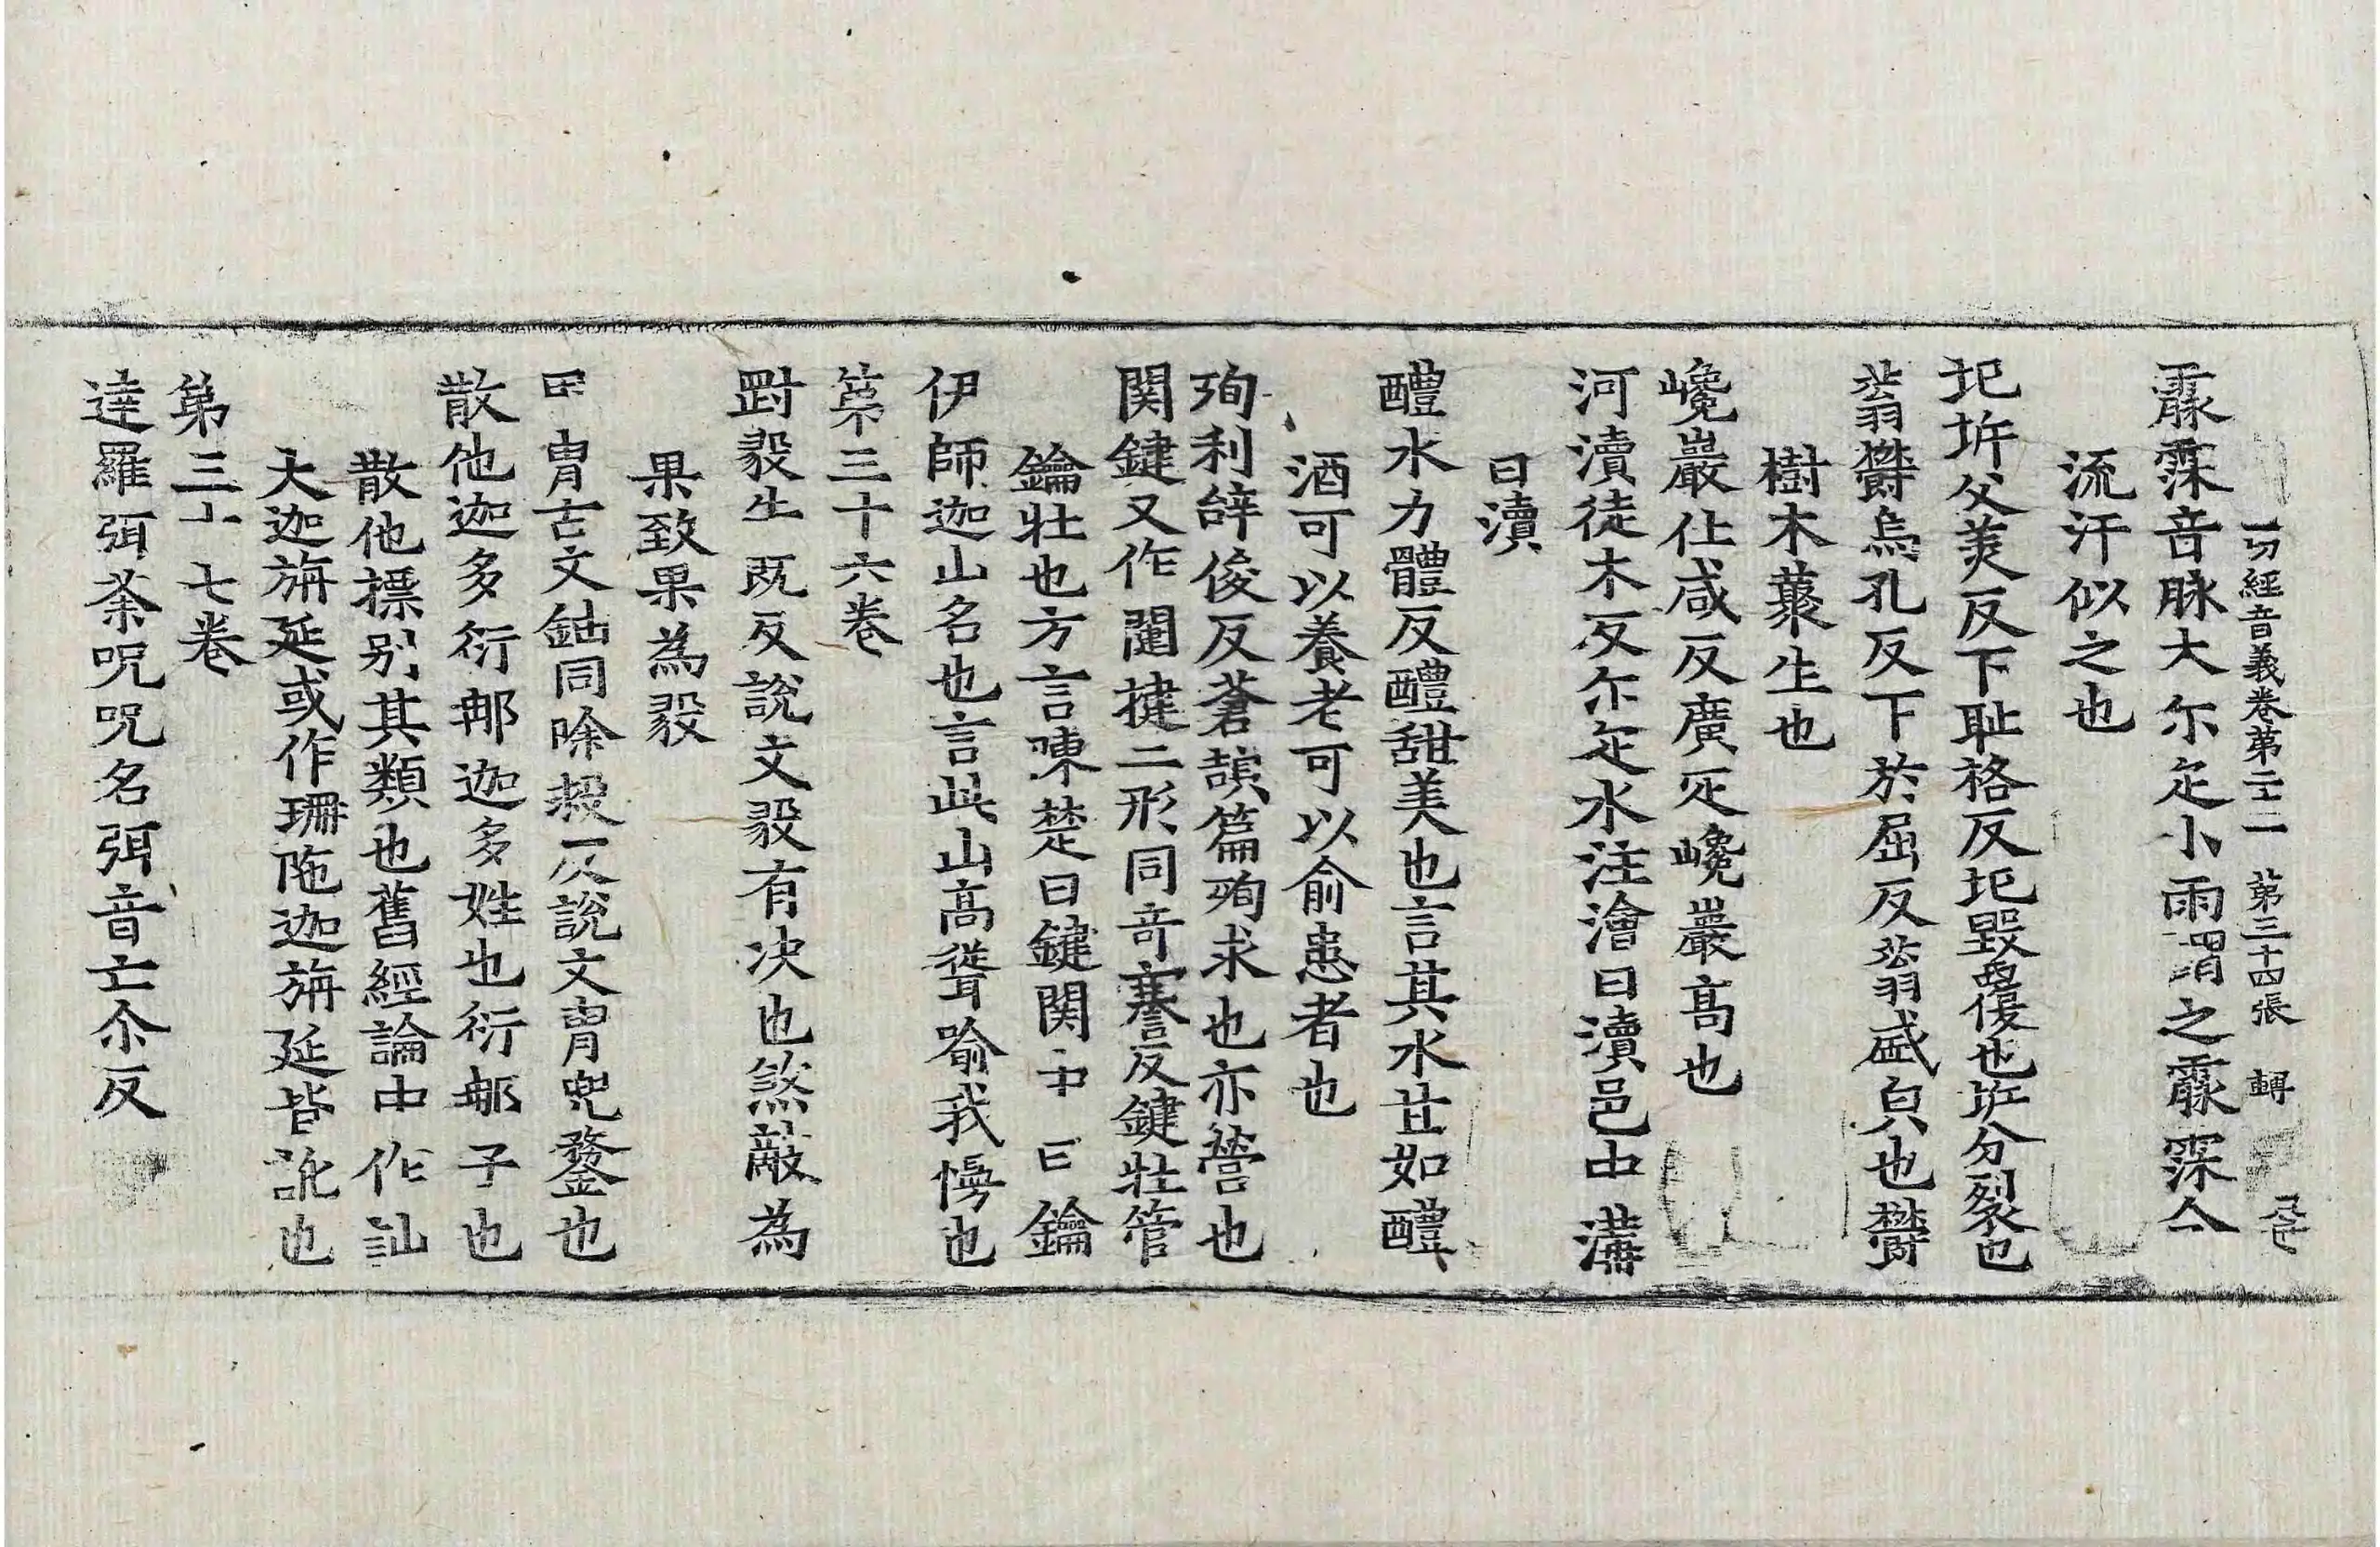 一切經音義卷第二十二 第三十四張 轉
霢霂音脉大尒疋小雨謂之霢霂今
流汗似之也
圮坼父美反下恥格反圮毀覆也坼分裂也
蓊欝烏孔反下於屈反蓊盛皃也欝
樹木藂生也
巉巖仕咸反廣疋巉巖高也
河瀆徒木反尒疋水注澮曰瀆邑中溝
曰瀆
醴水力體反醴甜美也言其水甘如醴
酒可以養老可以俞患者也
殉利辝俊反蒼頡篇殉求也亦營也
関鍵又作闥揵二形同竒謇反鍵牡管
鑰牡也方言陳楚曰鍵関中曰鑰
伊師迦山名也言此山高聳喻我慢也
第三十六卷
對毅牛既反說文毅有决也煞敵為
果致果為毅
甲冑古文𨥥同除救反說文冑兜鍪也
散他迦多衍那迦多姓也衍那子也
散他摽别其類也舊經論中作訕
大迦旃延或作珊陁迦旃延皆訛也
第三十七卷
達羅弭荼呪呪名弭音亡尒反